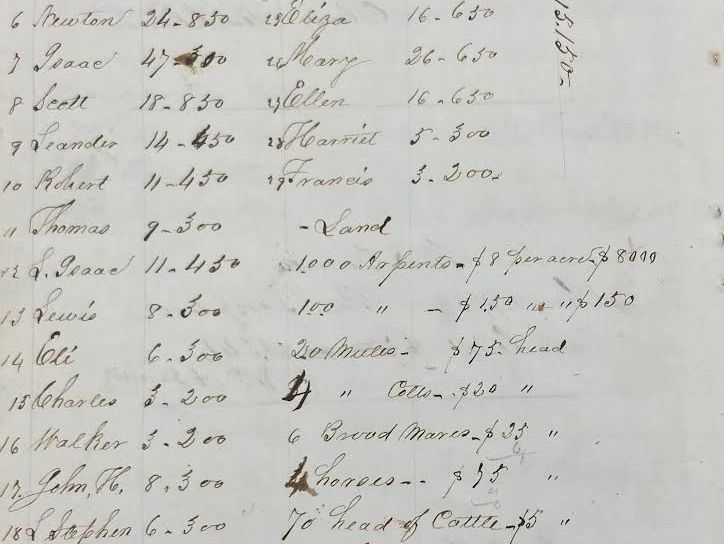 6 Newton 24-850 25 Eliza 16-650
7 Isaac 47-300 26 Mary 26-650
8 Scott 18-850 27 Ellen 16-650
9 Leander 14-450 28 Harriet 5-300
10 Robert 11-450 29 Francis 3-200-
11 Thomas 9-300 - Land
12 L. Isaac 11-450 1000 Arpents - $8 per acre - $8000
13 Lewis 8-300 100 " - $1.50 " " $150
14 Eli 6-300 20 Mules - $75- head
15 Charles 3-200 4 " Colts - $20 "
16 Walker 3-200 6 Brood Mares - $25 "
17. John, H. 8-300 4 horses - - $75 "
18 L Stephen 6-300 70 head of Cattle - $5 "
15.150-